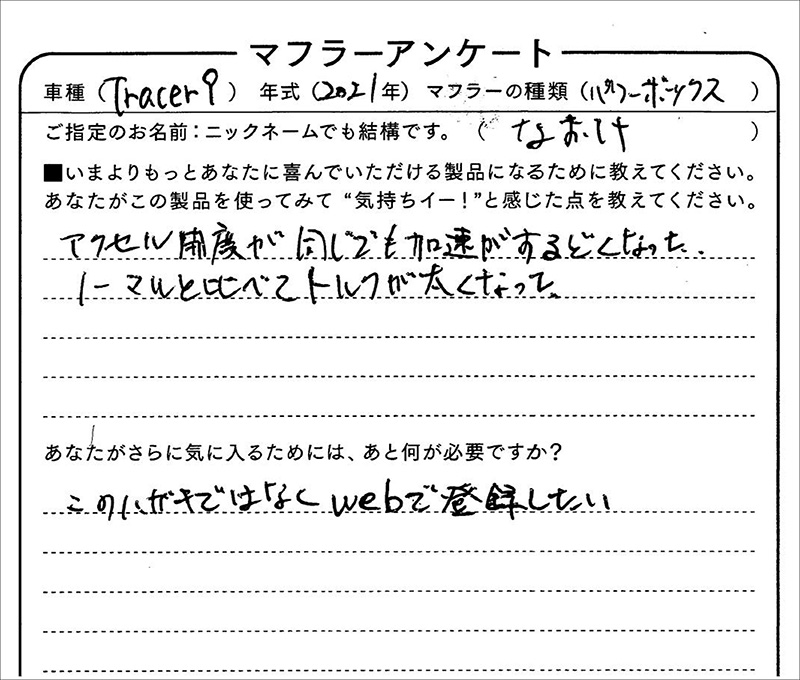 マフラーアンケート
車種（Tracer9）年式（2021年）マフラーの種類（パワーボックス）
ご指定のお名前：ニックネームでも結構です。（なおけ）
■いまよりもっとあなたに喜んでいただける製品になるために教えてください。
あなたがこの製品を使ってみて“気持ちイー！”と感じた点を教えてください。
アクセル開度が同じでも加速がするどくなった。
ノーマルと比べてトルクが太くなった。
あなたがさらに気に入るためには、あと何が必要ですか？
このハガキではなくwebで登録したい